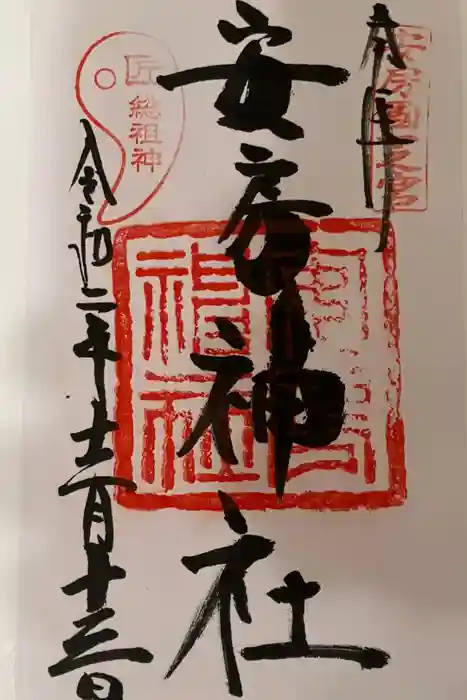 奉拝
安房國一之宮
安房神社
匠総祖神
令和二年十二月十三日